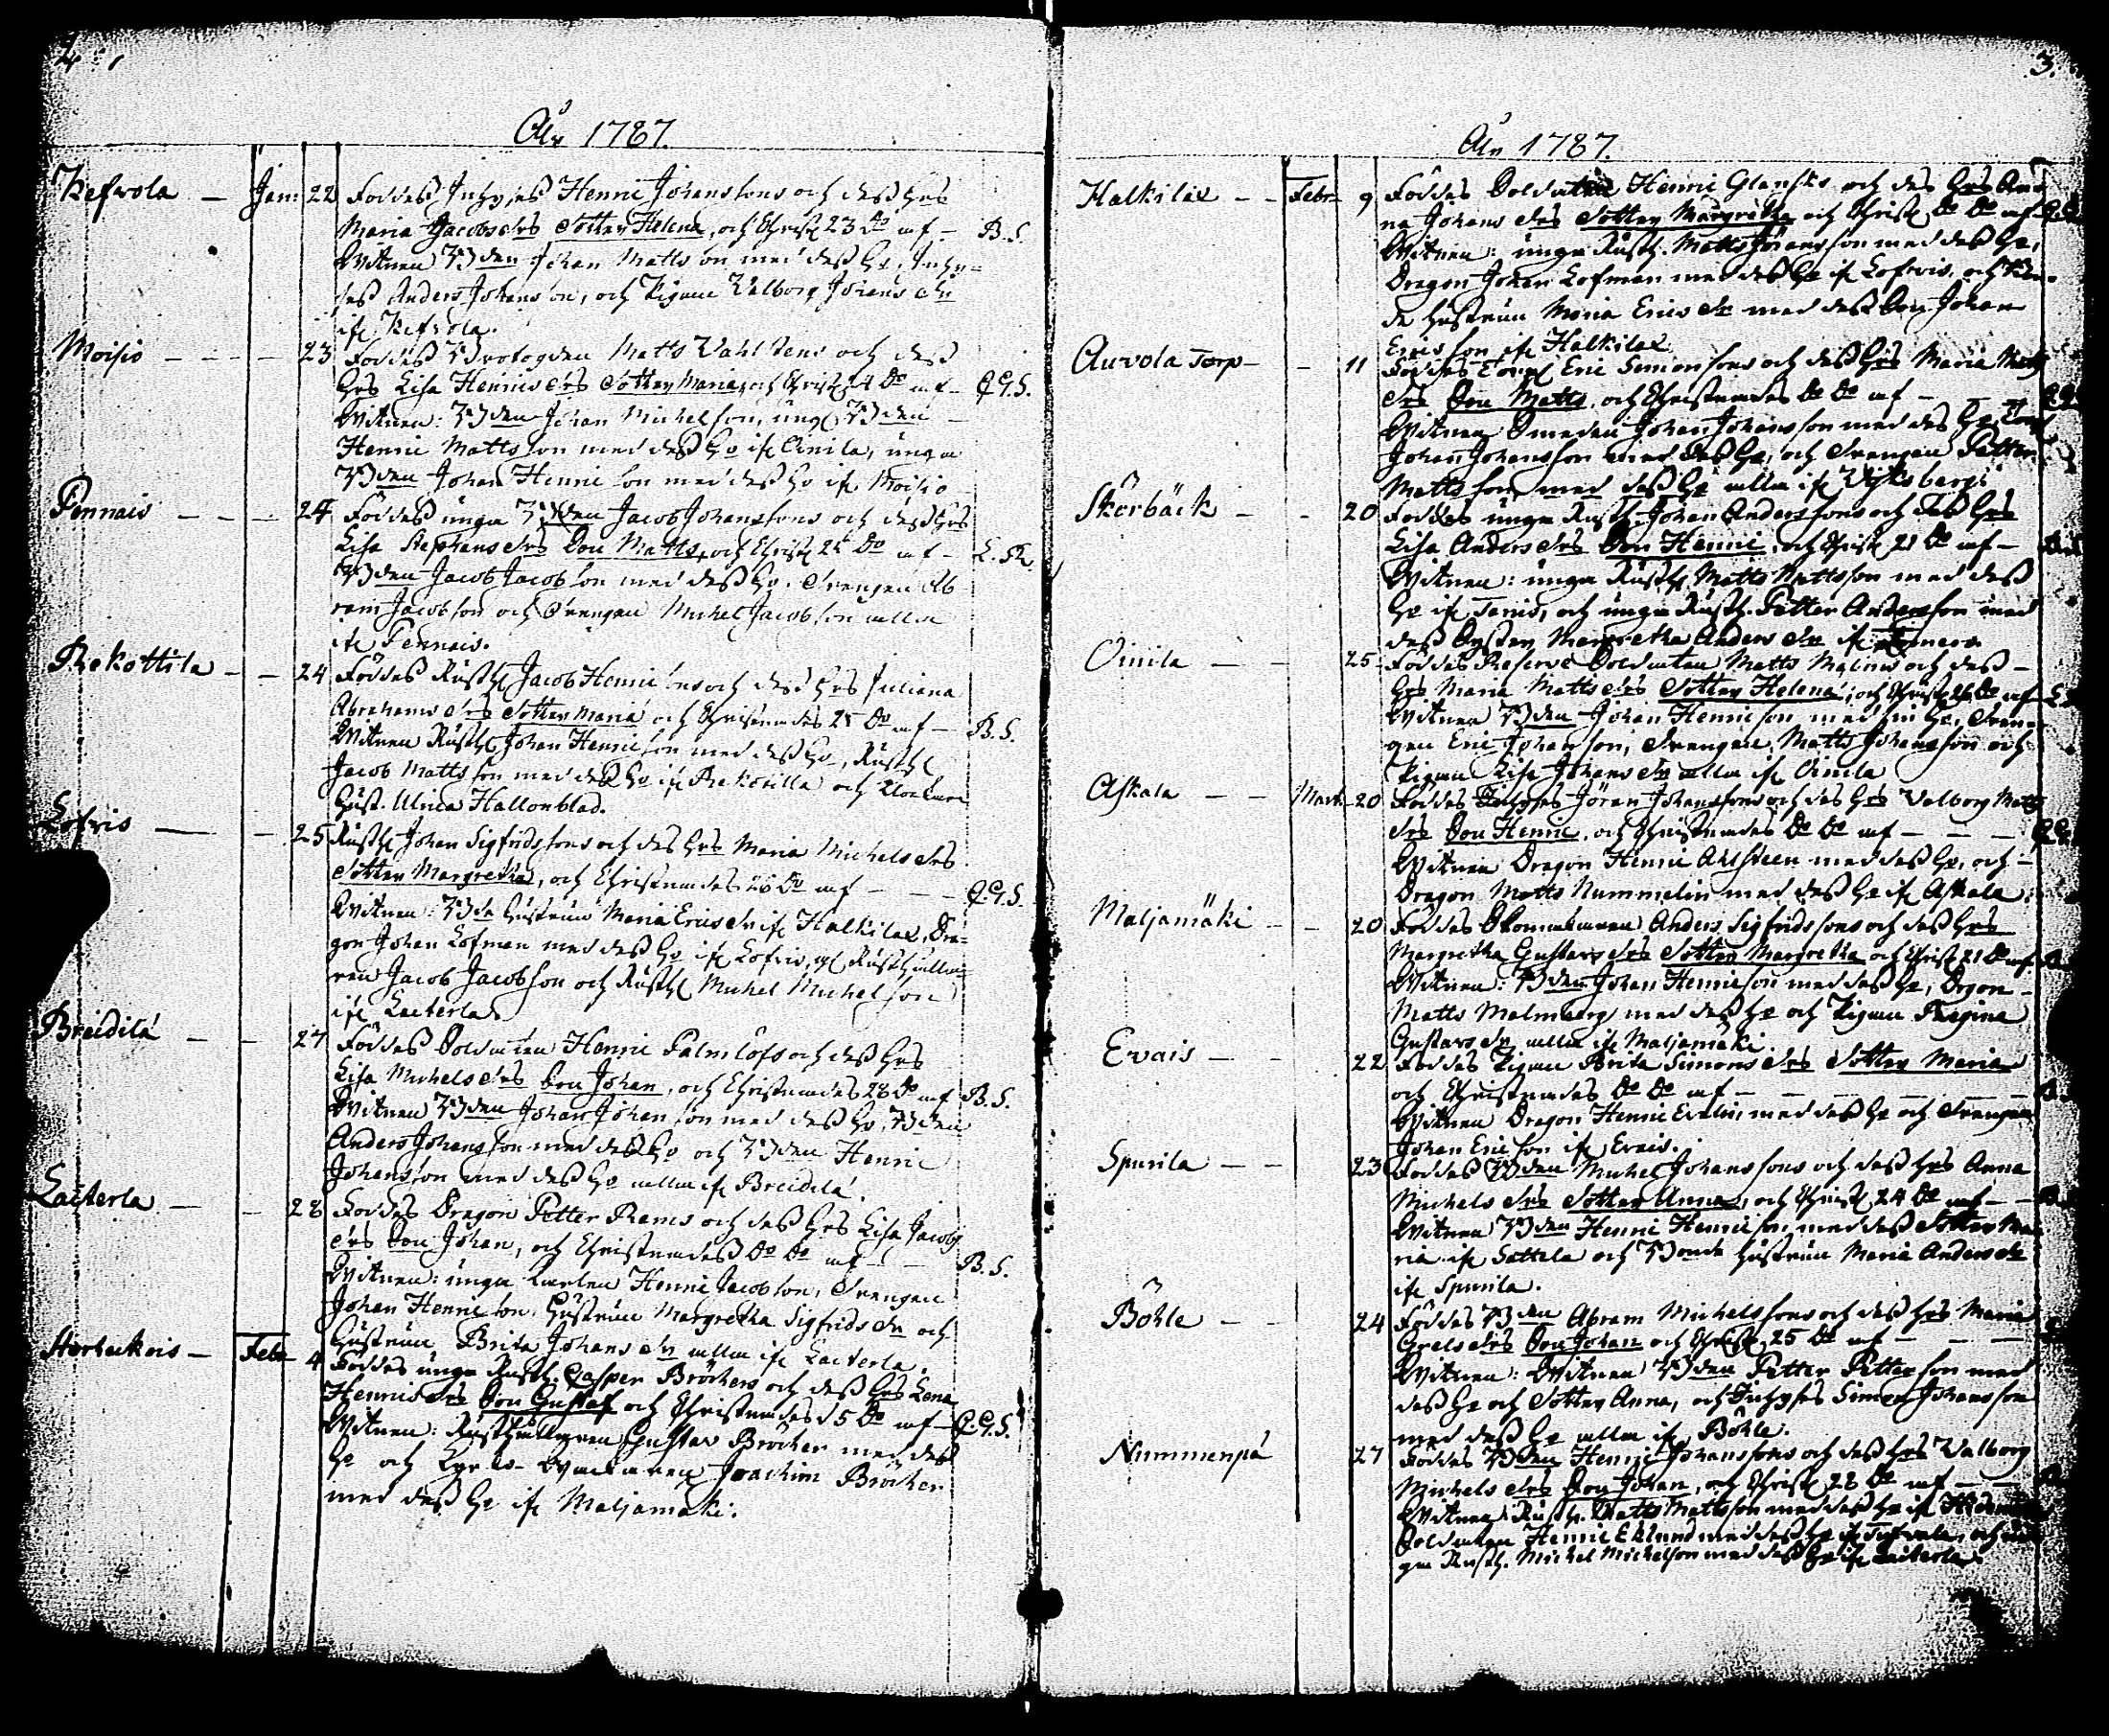 År 1787.
Kefvola — Jan: 22 Föddes Inhyses Henric Johanssons och dess Hrs
Maria Jacobs drs dotter Helena, och Christ 23 do af — B.S.
Witnen Bden Johan Mattsson med dess Ho, Inhy=
ses Anders Johansson, och Pigan Valborg Johans dr
if. Kefvola.
Moisio — — — — 23 Föddes Matts Vahlstens och dess
Hrs Lisa Henrics drs dotter Maria, och Christ 24 do af — C.G.S.
Witnen: Bden Johan Michelsson, ung Bden
Henric Mattsson med dess Ho if. Oinila, unga
Bden Johan Henricsson med dess Ho if. Moisio
Pennais — — — 24 Föddes unga Bden Jacob Johanssons och dess Hrs
Lisa Stephans drs Son Matts, och Christ 25 do af —
Bden Jacob Jacobsson med dess Ho. Drengen Ab
ram Jacobsson och Drengen Michel Jacobsson alla
if. Pennais.
Rekottila — — 24 Föddes Rusth Jacob Henricssons och dess Hrs Juliana
Abrahams drs dotter Maria och Christnades 25 do af — B.S.
Witnen Rusth Johan Henricsson med dess Ho, Rusth
Jacob Mattsson med dess Ho if. Rekotilla och Klockare
Hust. Ulrica Hallonblad.
Lofvis — — 25 Rusth Johan Sigfridssons och des Hrs Maria Michels drs
dotter Margretha, och Christnades 26 do af — — C.G.S.
Witnen: Bda Hustrun Maria Erics dr if. Halkilax, Dra=
gon Johan Lofman med dess Ho if. Lofvis, gl Rusthålla
ren Jacob Jacobsson och Rusth Michel Michelsson
if. Laiterla.
Breidilä — — 27 Föddes Soldaten Henric Palmlöfs och dess Hrs
Lisa Michels drs Son Johan, och Christnades 28 do af B.S.
Witnen Bden Johan Johansson med dess Ho, Bden
Anders Johansson med dess Ho och Bden Henric
Johansson med dess Ho alla if. Breidilä.
Laiterla — — 28 Föddes Dragon Petter Rams och dess Hrs Lisa Jacobs
drs Son Johan, och Christnades do do af — B.S.
Witnen: unga Karlen Henric Jacobsson, Drengen
Johan Henricsson. Hustrun Margretha Sigfrids dr och
Hustrun Brita Johans dr alla if. Laiterla.
— Febr 4 Föddes unga Rusth. Casper Bröckers och dess Hrs Lena
Henrics drs Son Gustaf och Christnades d 5 do af — C.G.S.
Witnen: Rusthållaren Gustav Bröcker med dess
Ho och Joachim Bröcker
med dess Ho if. Maljamäki.
3.
År 1787.
Halkilax — — Febr 9 Föddes Soldaten Henric Glansks och des Hrs An=
na Johans drs dotter Margretha och Christ do do af
Witnen: unga Rusth. Matts Jöransson med dess Ho,
Dragon Johan Lofman med dess Ho if. Lofvis, och
de Hustrun Maria Erics dr med dess Son Johan
Ericsson if. Halkilax
Auvola Torp — — 11 Föddes Torp Eric Simonssons och dess Hrs Maria Matts
drs Son Matts, och Christnades do do af — —
Witnen Smeden Johan Johansson med des Ho, Torp
Johan Johansson med dess Ho, och Drengen Petter
Mattsson med dess Ho alla if. Vijksberg.
Skorbäck — — 20 Föddes unga Rusth. Johan Anderssons och dess Hrs
Lisa Anders drs Son Henric, och Christ 21 do af —
Witnen: unga Rusth Matts Mattsson med dess
Ho if. Tenis, och unga Rusth. Petter Andersson med
dess Syster Margretha Anders dr if.
Oinila — — 25 Föddes Reserve Soldaten Matts Malms och dess —
Hrs Maria Matts drs dotter Helena, och Christ 26 do af
Witnen Bden Johan Henricsson med sin Ho, Dren=
gen Eric Johansson, Drengen Matts Johansson och
Pigan Lisa Johans dr alla if. Oinila
Askala — — Mart 20 Föddes Inhyses Jöran Johanssons och des Hrs Valborg Matts
drs Son Henric, och Christnades do do af — — —
Witnen Dragon Henric Ahlsteen med dess Ho, och —
Dragon Matts Nummelin med dess Ho if. Askala.
Maljamäki — — 20 Föddes Skomakaren Anders Sigfridssons och dess Hrs
Margretha Gustavs drs dotter Margretha och Christ 21 do af
Witnen: Bden Johan Henricsson med dess Ho, Dragon
Matts Malmberg med dess Ho och Pigan Regina
Gustavs dr alla if. Maljamäki
Evais — — 22 Föddes Pigan Brita Simons drs dotter Maria
och Christnades do do af — — — — —
Witnen Dragon Henric Evalin, med dess Ho och Drengen
Johan Ericsson if. Evais.
Spurila — — 23 Föddes Bden Michel Johanssons och dess Hrs Anna
Michels drs dotter Anna, och Christ 24 do af — —
Witnen Bden Henric Henricsson med dess dotter Ma
ria if. Sattela och Bonde Hustrun Maria Anders dr
if. Spurila.
Böhle — — 24 Föddes Bden Abram Michelssons och dess Hrs Maria
Grels drs Son Johan och Christ 25 do af — — —
Witnen: Witnen Bden Petter Pettersson med
dess Ho och dotter Anna, och Inhyses Simon Johansson
med dess Ho alla if. Böhle.
Nummenpä 27 Föddes Bden Henric Johanssons och dess Hrs Valborg
Michels drs Son Johan, och Christ 28 do af — —
Witnen Rusth. Matts Mattsson med dess Ho if.
Soldaten Henric Eklund med dess Ho if. och un
ga Rusth. Michel Michelsson med dess Ho if. Laiterla.